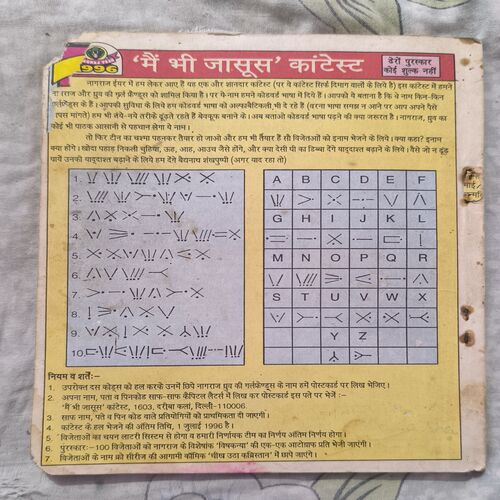 1996
'मैं भी जासूस' कांटेस्ट
ढेरों पुरस्कार
कोई शुल्क नहीं
नागराज ईयर में हम लेकर आए हैं यह एक और शानदार कांटेस्ट (पर ये कांटेस्ट सिर्फ दिमाग वालों के लिये है) इस कांटेस्ट में हमने
नागराज और ध्रुव की गर्लफ्रेंण्ड्स को शामिल किया है। पर ये नाम हमने कोडवर्ड भाषा में दिये हैं। आपको ये बताना है कि ये नाम किन-किन
गर्लफ्रेंण्ड्स के हैं। आपकी सुविधा के लिये हम कोडवर्ड भाषा की अल्फाबैटिकली भी दे रहे हैं (वरना भाषा समझ न आने पर आप अपने पैसे
वापस मांगते) हम भी नये-नये तरीके ढूंढते रहते हैं बेवकूफ बनाने के। अब बताओ कोडवर्ड भाषा पढ़ने की क्या जरूरत है। नागराज, ध्रुव का
कोई भी पाठक आसानी से पहचान लेगा ये नाम।
तो फिर टीन का चश्मा पहनकर तैयार हो जाओ और हम भी तैयार हैं सौ विजेताओं को इनाम भेजने के लिये। क्या कहा? इनाम
क्या होंगे। खोदा पहाड़ निकली चुहिया, ऊह, आह, आउच जैसे होंगे, और क्या देसी घी का डिब्बा देंगे याददाश्त बढ़ाने के लिये। वैसे जो न ढूंढ
पायें उनकी याददाश्त बढ़ाने के लिये हम देंगे बैद्यनाथ शंखपुष्पी (अगर याद रहा तो)
1.
2.
3.
4.
5.
6.
7.
8.
9.
10.
A B C D E F
G H I J K L
M N O P Q R
S T U V W X
Y Z
नियम व शर्तेः-
1. उपरोक्त दस कोड्स को हल करके उनमें छिपे नागराज ध्रुव की गर्लफेंण्ड्स के नाम हमें पोस्टकार्ड पर लिख भेजिए।
2. अपना नाम, पता व पिनकोड साफ-साफ कैपिटल लैटर्स में लिख कर पोस्टकार्ड इस पते पर भेजें :-
'मैं भी जासूस' कांटेस्ट, 1603, दरीबा कलां, दिल्ली-110006.
3. साफ नाम, पते व पिन कोड वाले प्रतियोगियों को प्राथमिकता दी जाएगी।
4. कांटेस्ट के हल भेजने की अंतिम तिथि, 1 जुलाई 1996 है।
5. विजेताओं का चयन लाटरी सिस्टम से होगा व हमारी निर्णायक टीम का निर्णय अंतिम निर्णय होगा।
6. पुरस्कार-100 विजेताओं को नागराज के विशेषांक 'विषकन्या' की एक-एक आटोग्राफ प्रति भेजी जाएंगी।
7. विजेताओं के नाम को सीरीज की आगामी कॉमिक 'चीख उठा कब्रिस्तान' में छापे जाएंगे।